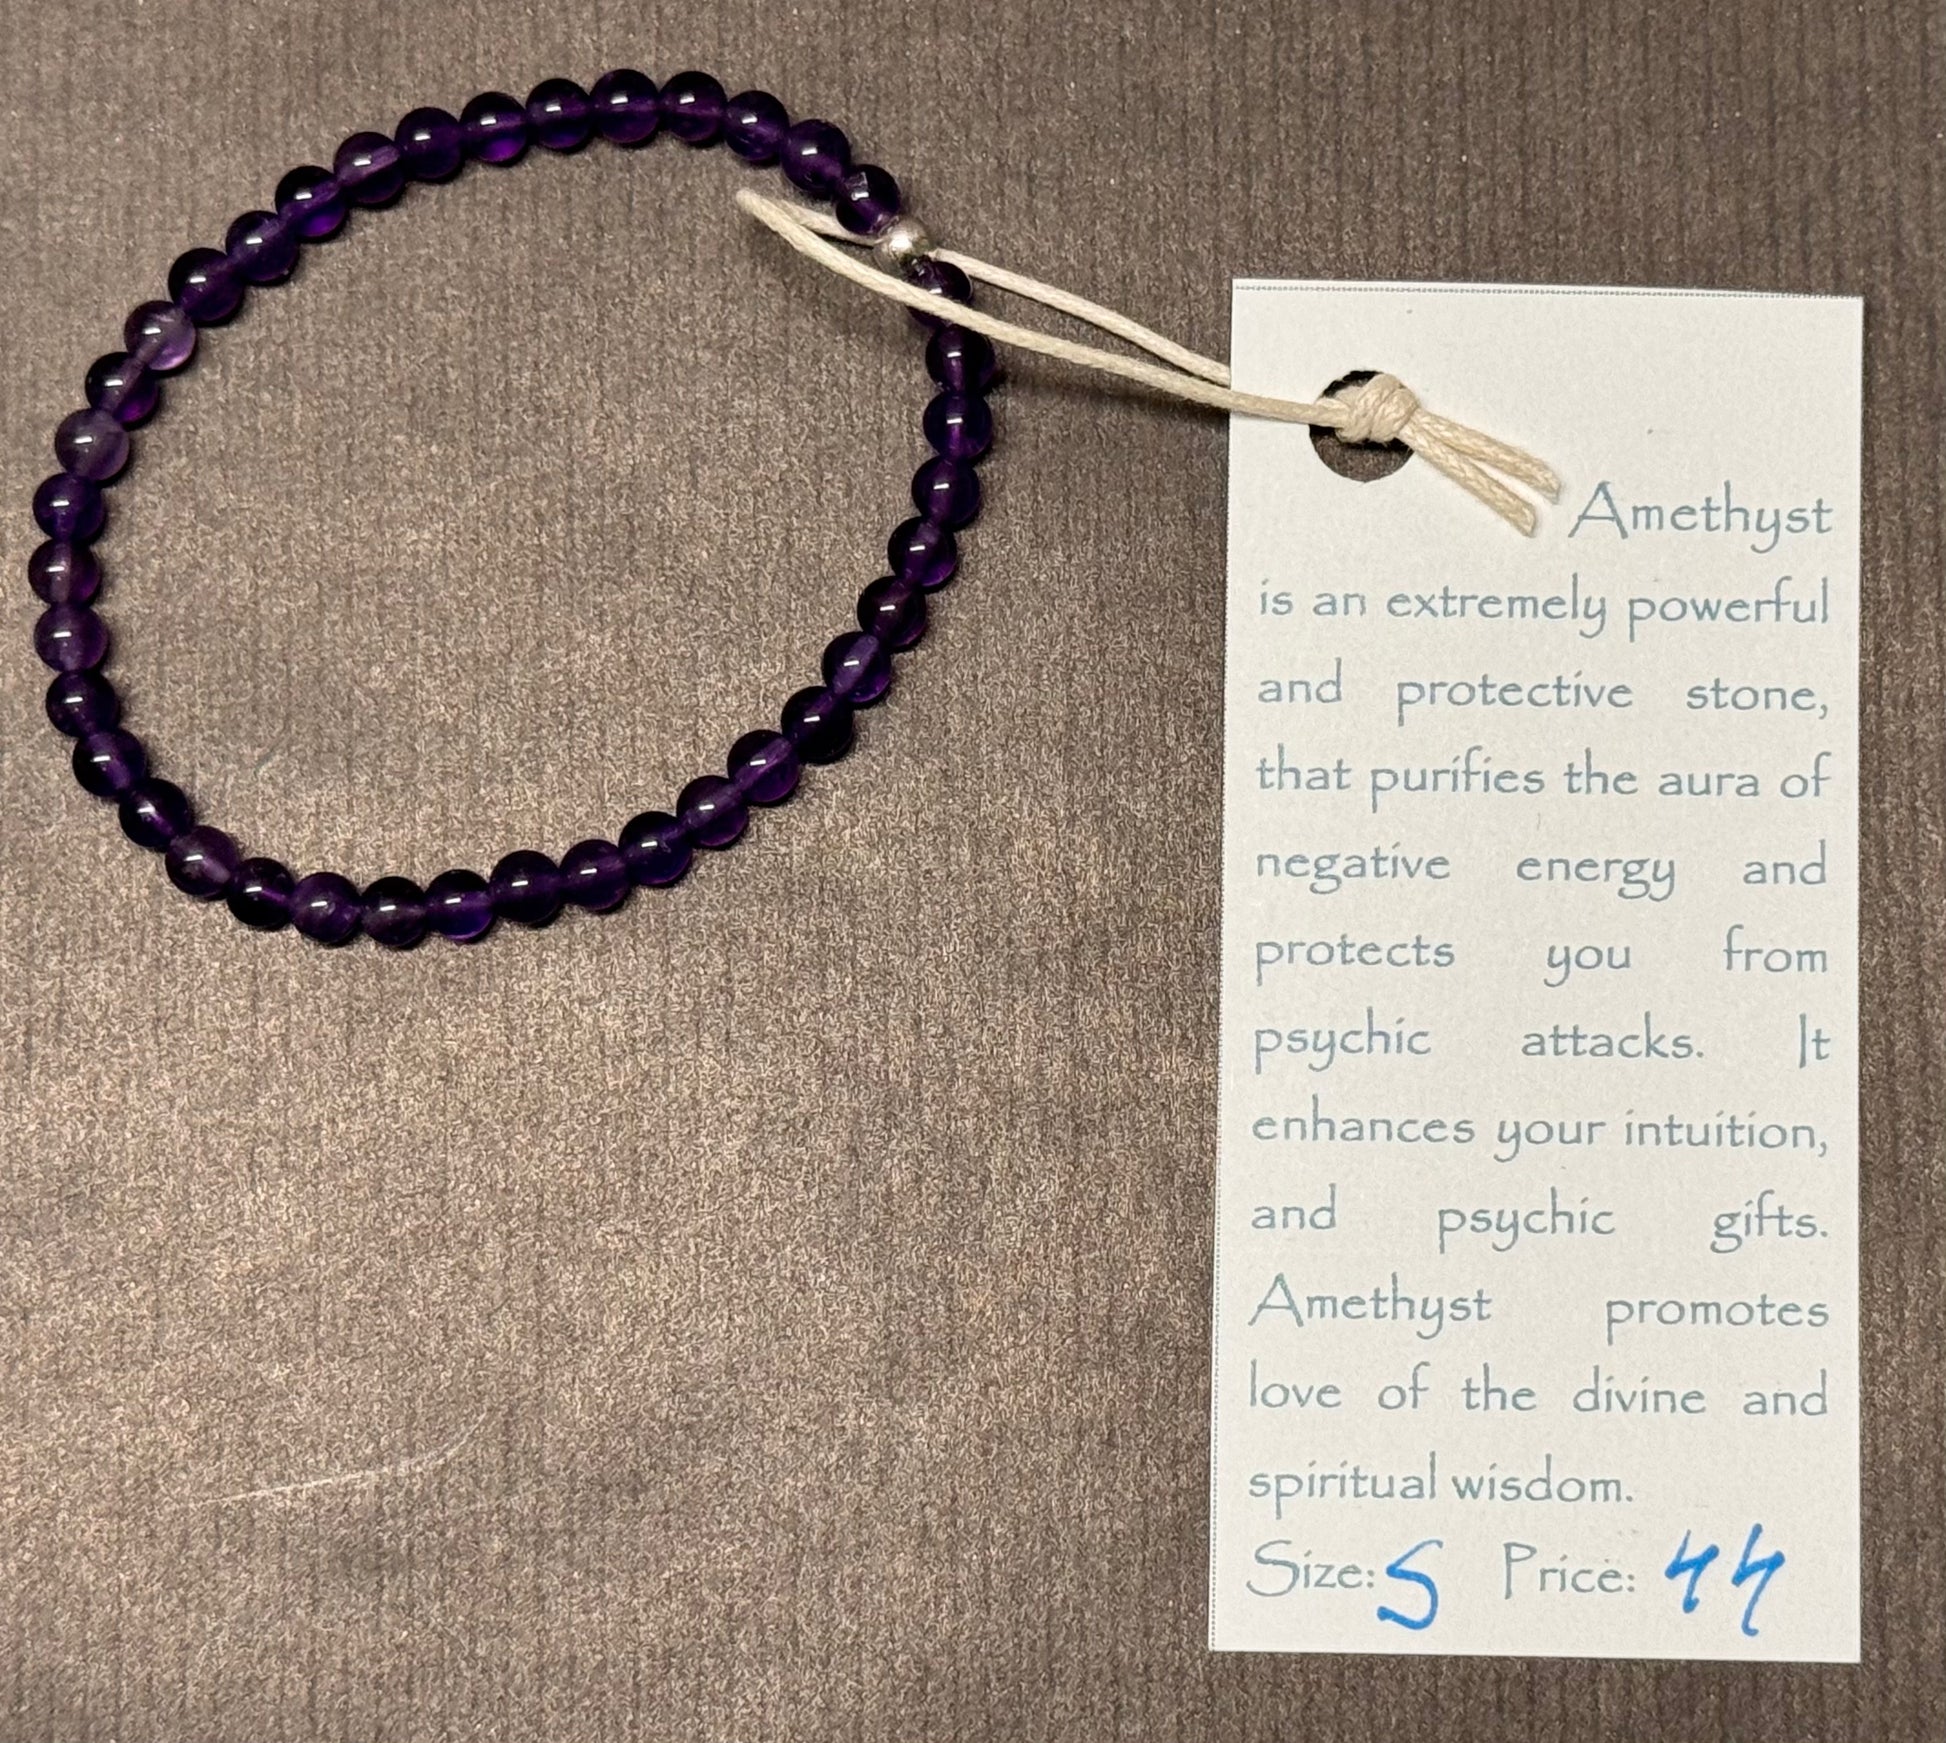 Amethyst
is an extremely powerful
and protective stone,
that purifies the aura of
negative energy and
protects you from
psychic attacks. It
enhances your intuition,
and psychic gifts.
Amethyst promotes
love of the divine and
spiritual wisdom.
Size: S Price: 44